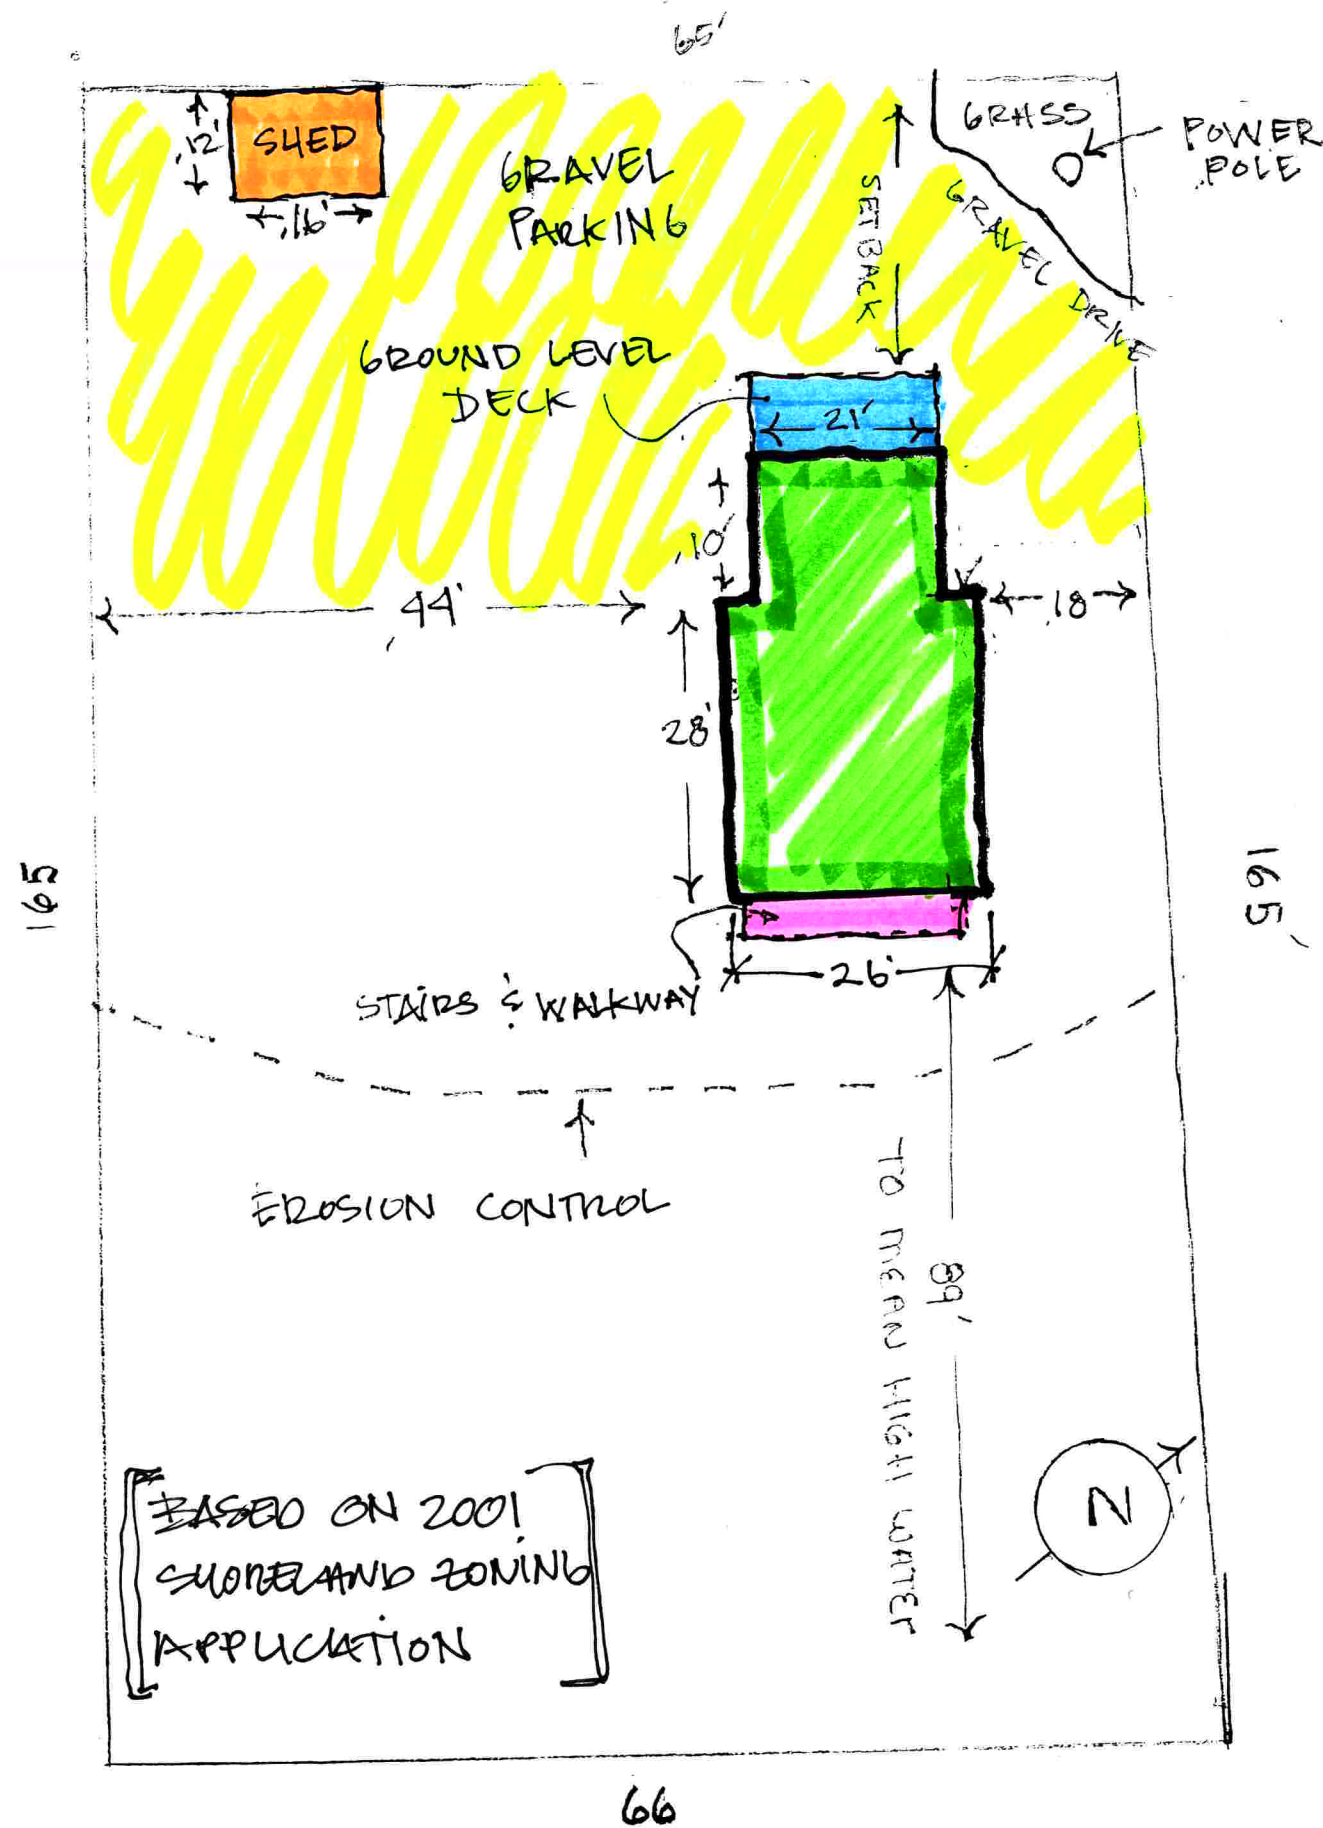 65'
GRASS
POWER
POLE
12'
SHED
16'
GRAVEL
PARKING
SETBACK
GRAVEL DRIVE
GROUND LEVEL
DECK
21'
10'
44'
18
28'
165
165'
26'
STAIRS & WALKWAY
EROSION CONTROL
89'
TO MEAN HIGH WATER
N
BASED ON 2001
SHORELAND ZONING
APPLICATION
66